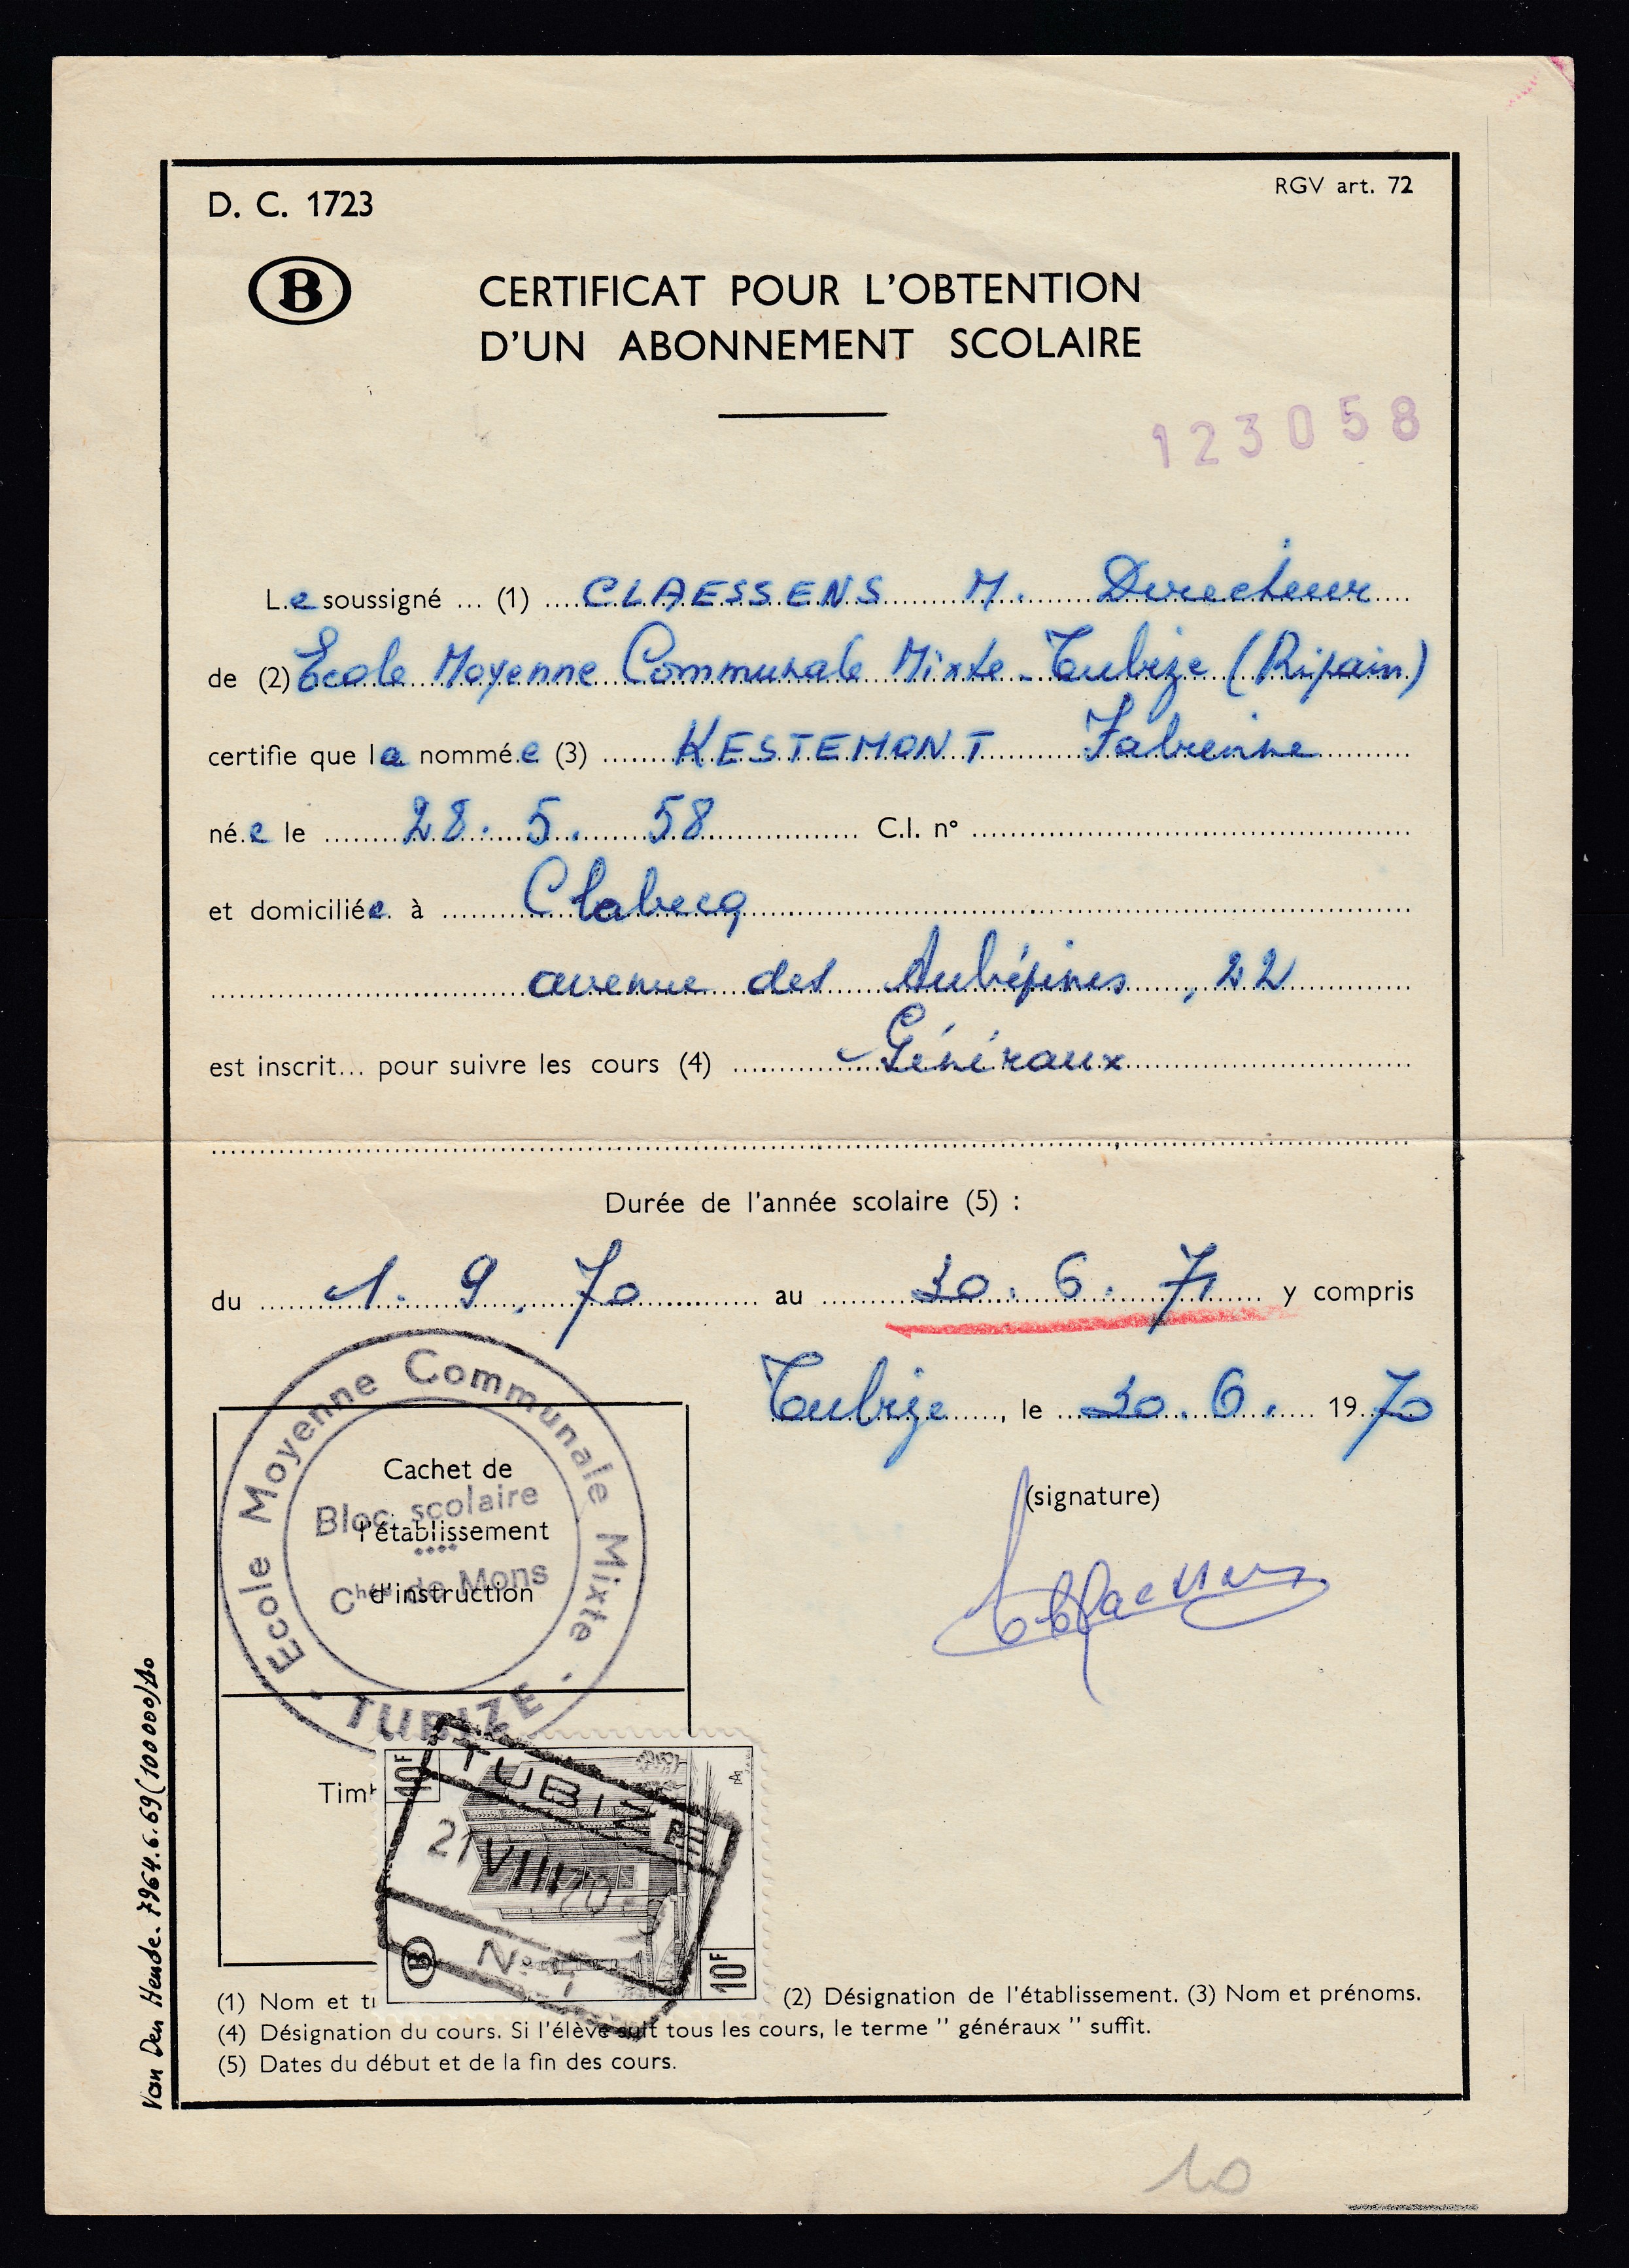 D. C. 1723
RGV art. 72
B
CERTIFICAT POUR L'OBTENTION
D'UN ABONNEMENT SCOLAIRE
123058
Le soussigné ... (1) CLAESSENS M. Directeur
de (2) Ecole Moyenne Communale Mixte - Tubize (Ripain)
certifie que la nommée (3) KESTEMONT Fabienne
née le 28. 5. 58 C.I. n°
et domiciliée à Clabecq
avenue des Aubépines, 22
est inscrit... pour suivre les cours (4) Généraux
Durée de l'année scolaire (5) :
du 1. 9. 70 au 30. 6. 71 y compris
Tubize, le 30. 6. 1970
(signature)
Ecole Moyenne Communale Mixte
TUBIZE
Bloc scolaire
Chée de Mons
Cachet de
l'établissement
d'instruction
Timb
10F
TUBIZE
21 VIII 70
N° 1
B
10F
(1) Nom et ti (2) Désignation de l'établissement. (3) Nom et prénoms.
(4) Désignation du cours. Si l'élève suit tous les cours, le terme " généraux " suffit.
(5) Dates du début et de la fin des cours.
Van Den Hende. 7964.6.69 (100000)
10